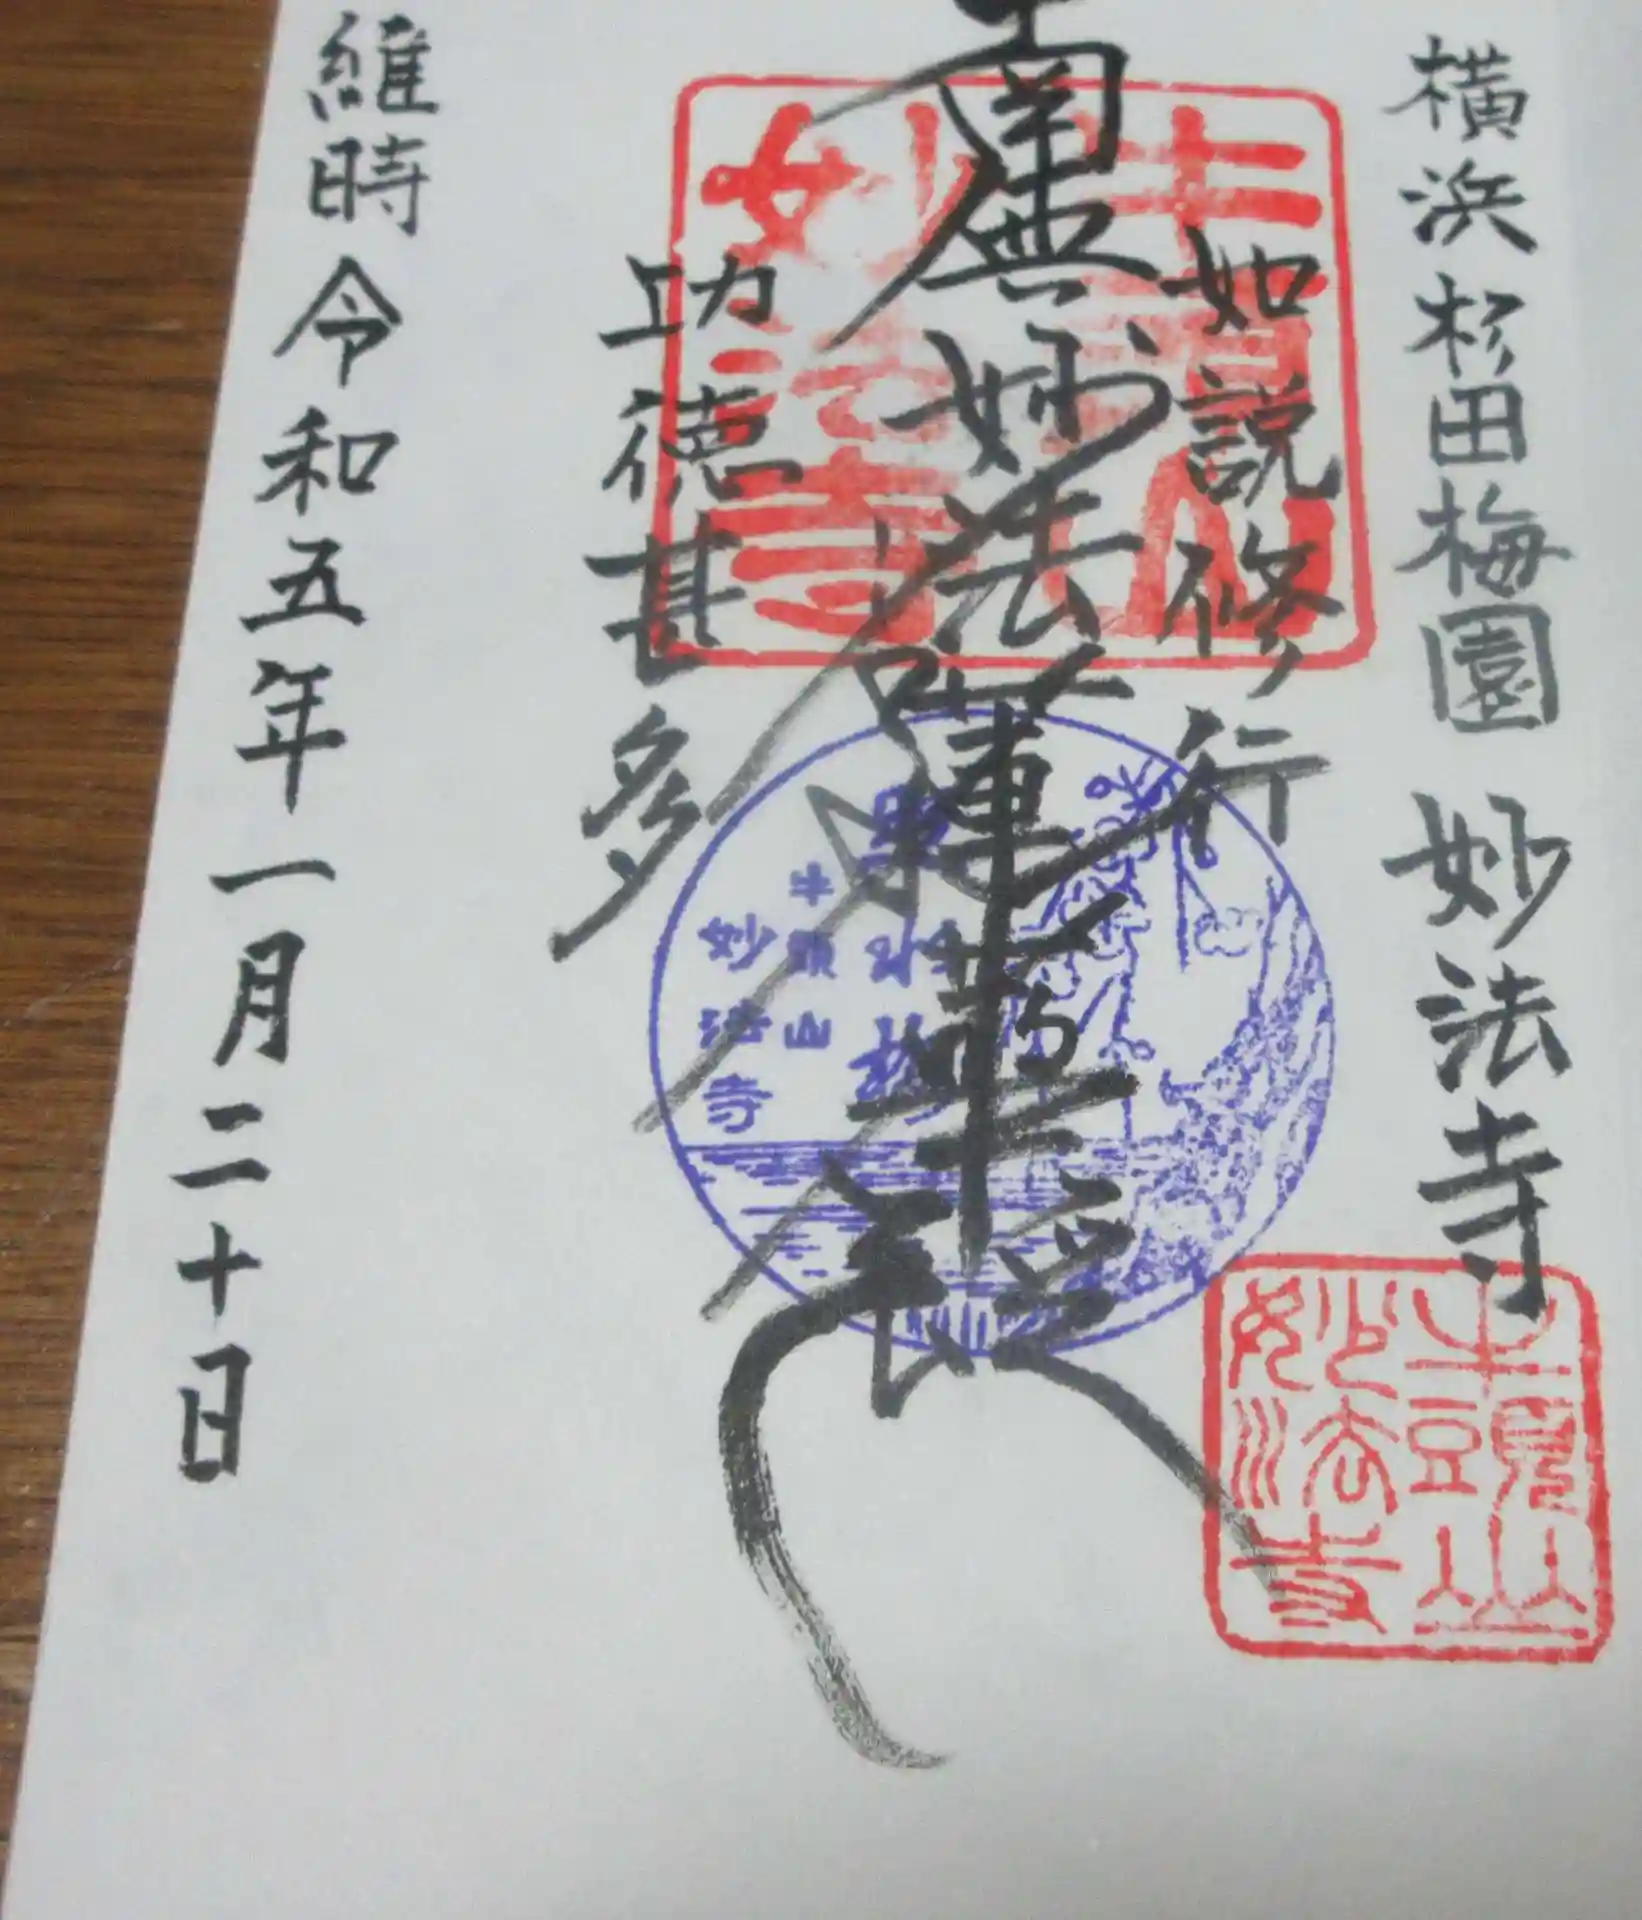 横浜杉田梅園 妙法寺
如説修行
南無妙法蓮華経
功徳甚多
維時令和五年一月二十日
牛頭山
妙法寺
牛頭山
妙法寺
牛頭山
妙法寺